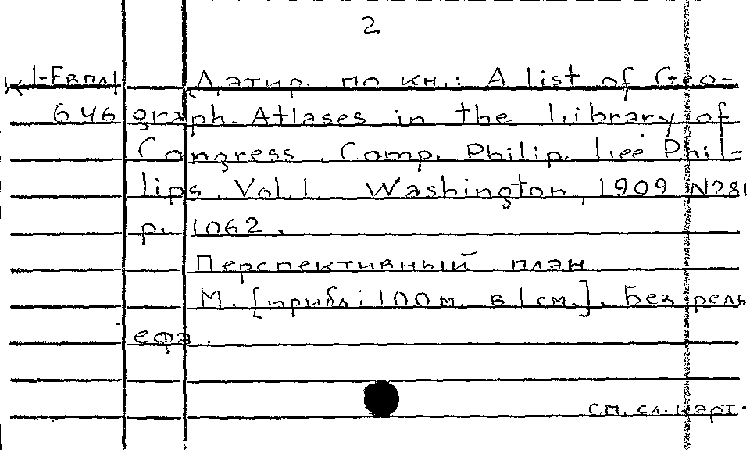 2
К 1-Евпл Датир. по кн.: A list of Geo-
646 graph. Atlases in the library of
Congress. Comp. Philip. Lee Phil-
lips. Vol. 1. Washington, 1909 N281
p. 1062.
Перспективный план
М. [прибл: 100 м. в 1 см.]. Без рель
ефа.
см. сл. карт.